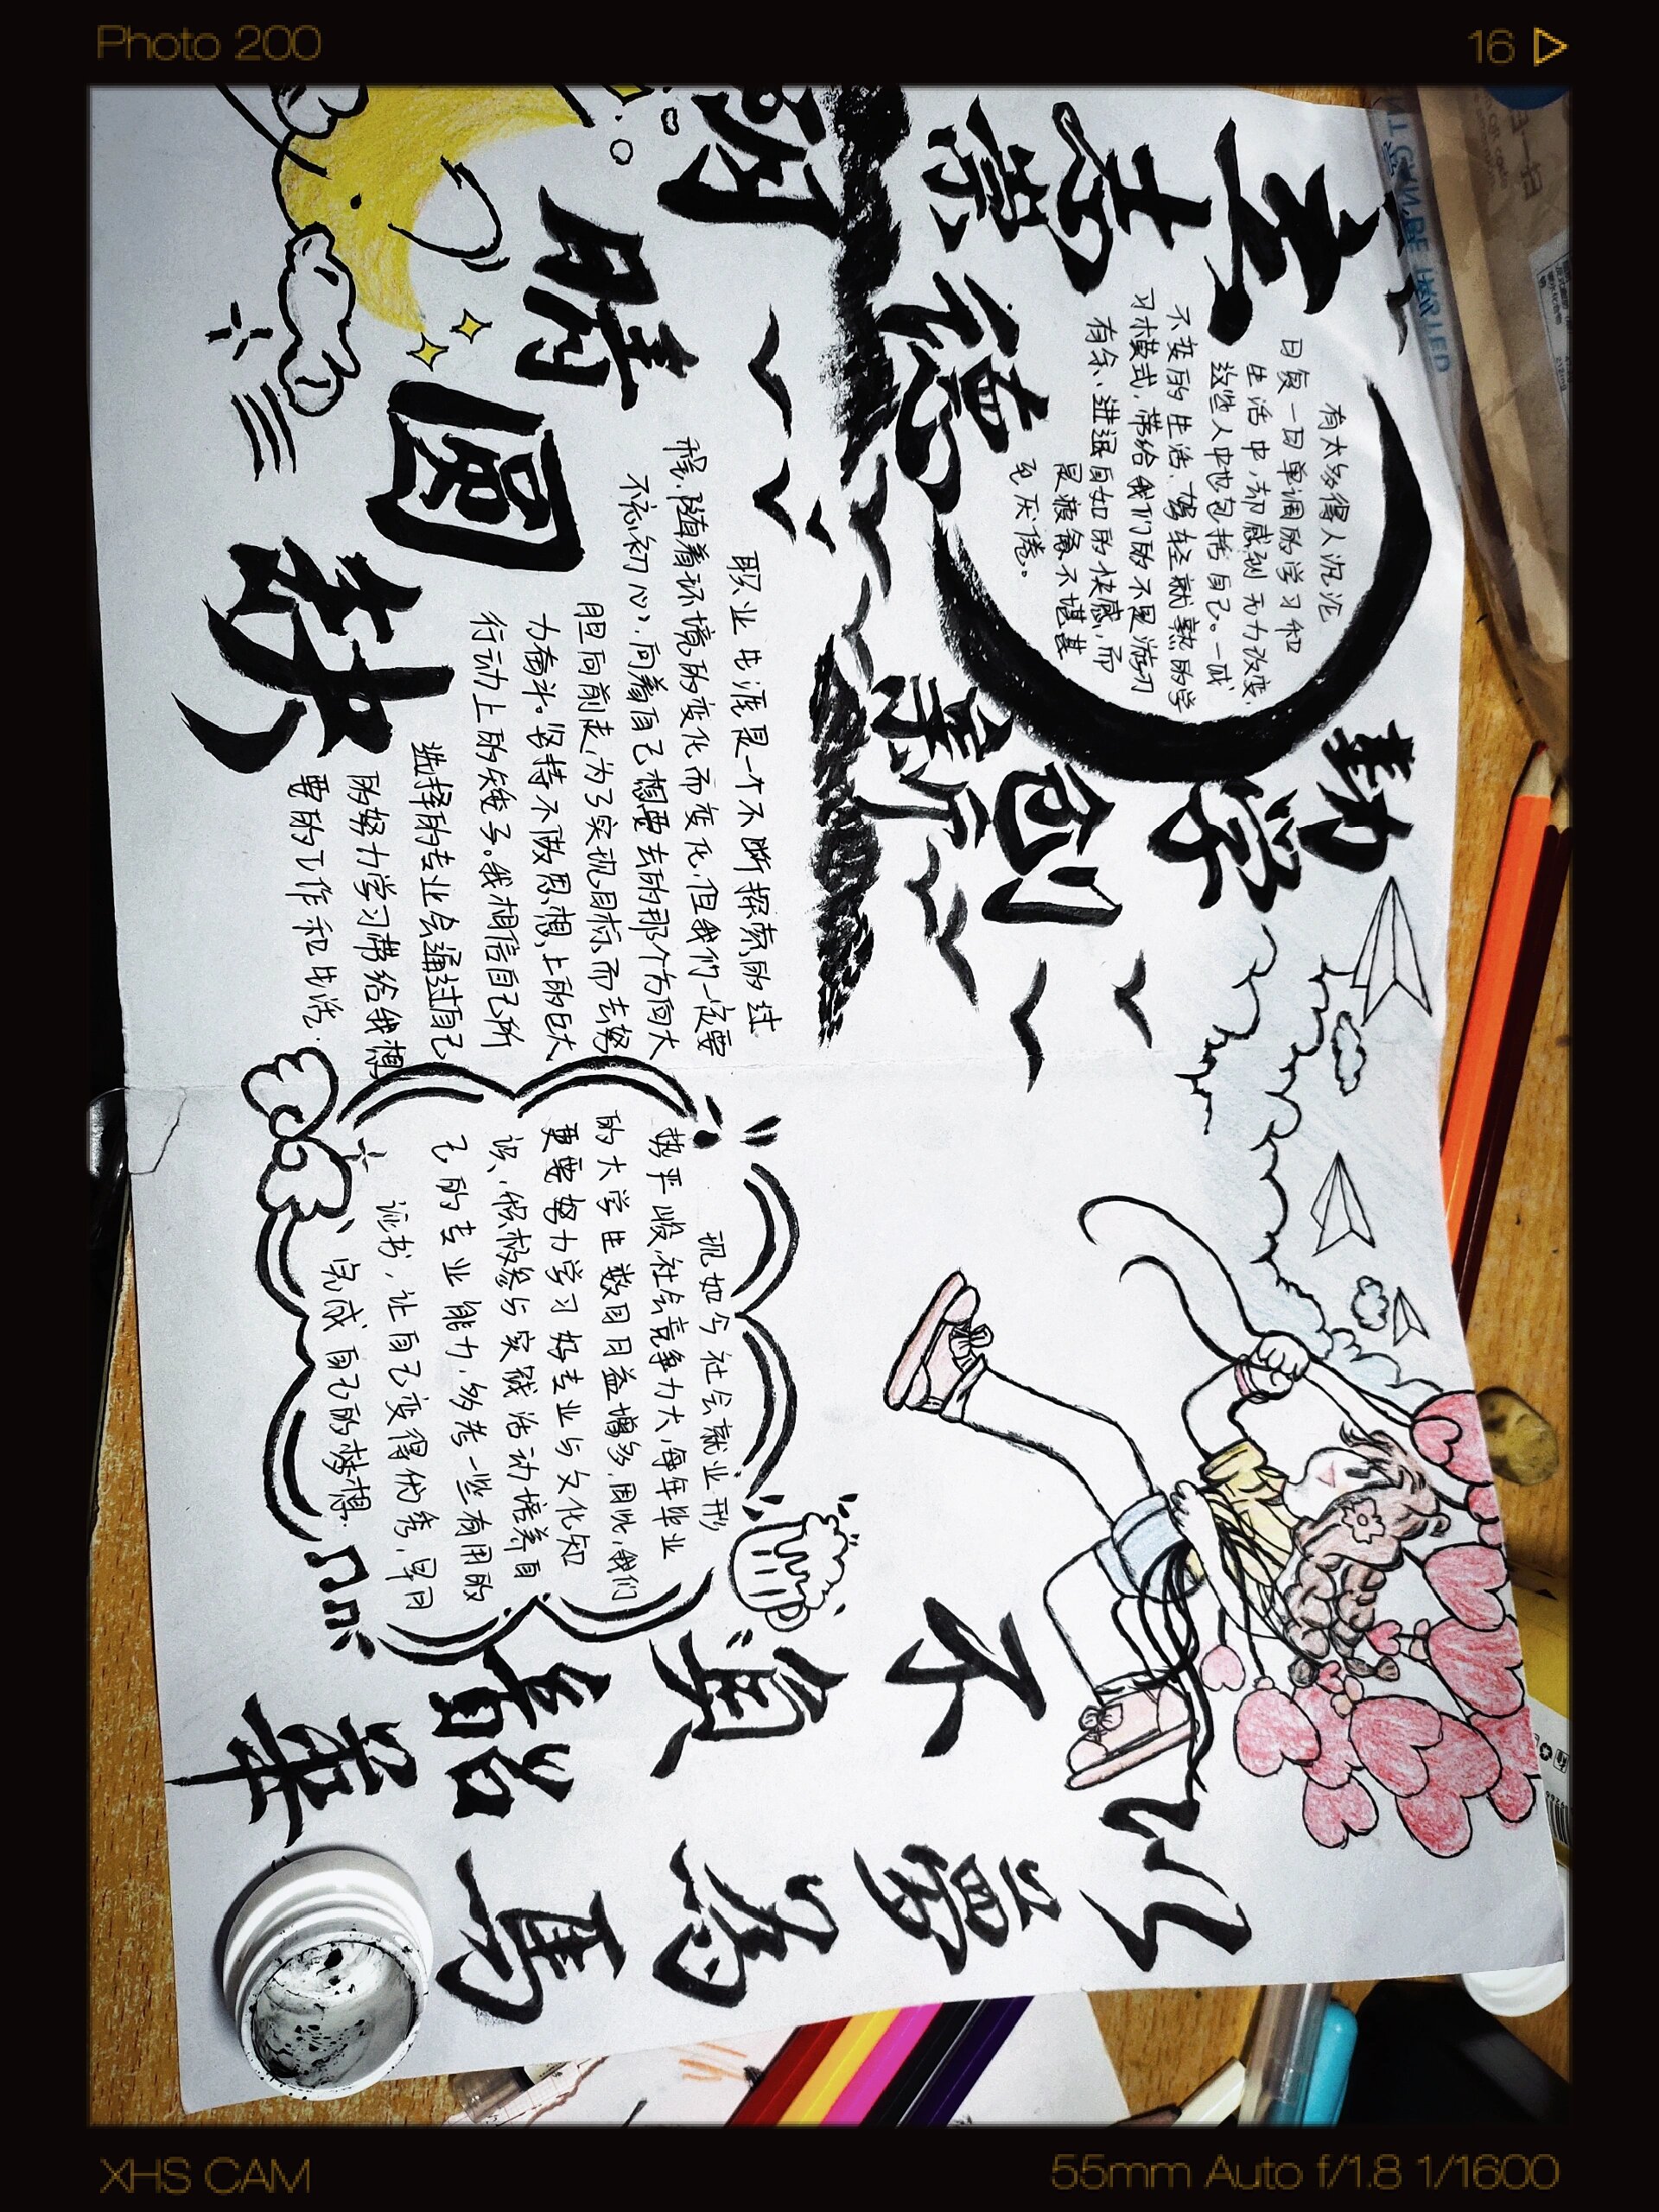 Photo 200
16
玄
志
崇德
勤学
创新
有太多得人沉沦
日复一日单调的学习和
生活中,却感到无力改变.
这些人中也包括自己。一成
不变的生活、驾轻就熟的学
习模式,带给我们的不是游刃
有余、进退自如的快感,而
是疲惫不堪甚
至厌倦。
晴
圆
梦
职业生涯是一个不断探索的过
程,随着环境的变化而变化,但我们一定要
不忘初心,向着自己想要去的那个方向大
胆向前走,为了实现目标而去努
力奋斗。坚持不做思想上的巨大
行动上的矮子。我相信自己所
选择的专业会通过自己
的努力学习带给我想
要的工作和生活.
现如今社会就业形
势严峻,社会竞争力大,每年毕业
的大学生数目日益增多,因此,我们
更要努力学习好专业与文化知
识、积极参与实践活动培养自
己的专业能力,多考一些有用的
证书,让自己变得优秀,早日
完成自己的梦想.
以夢為馬
不負韶華
XHS CAM
55mm Auto f/1.8 1/1600